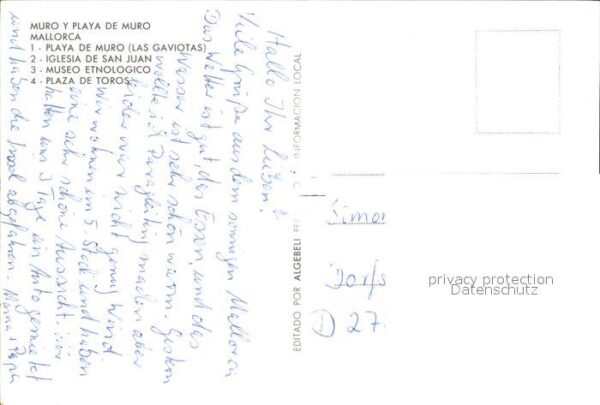 MURO Y PLAYA DE MURO
MALLORCA
1 - PLAYA DE MURO (LAS GAVIOTAS)
2 - IGLESIA DE SAN JUAN
3 - MUSEO ETNOLOGICO
4 - PLAZA DE TOROS
Hallo Ihr Lieben!
Viele Grüße aus dem sonnigen Mallorca
Das Wetter ist gut, das Essen, und das
Wasser ist sehr schön warm. Gestern
wollte ich Paragleiting machen aber
leider war nicht genug Wind
Wir wohnen im 5 Stock und haben
eine sehr schöne Aussicht. Wir
hatten uns 3 Tage ein Auto gemietet
und haben die Insel abgefahren. Mama + Papa
EDITADO POR ALGEBELI
INFORMACION LOCAL
Simon
Dorfs
D 27.
privacy protection
Datenschutz